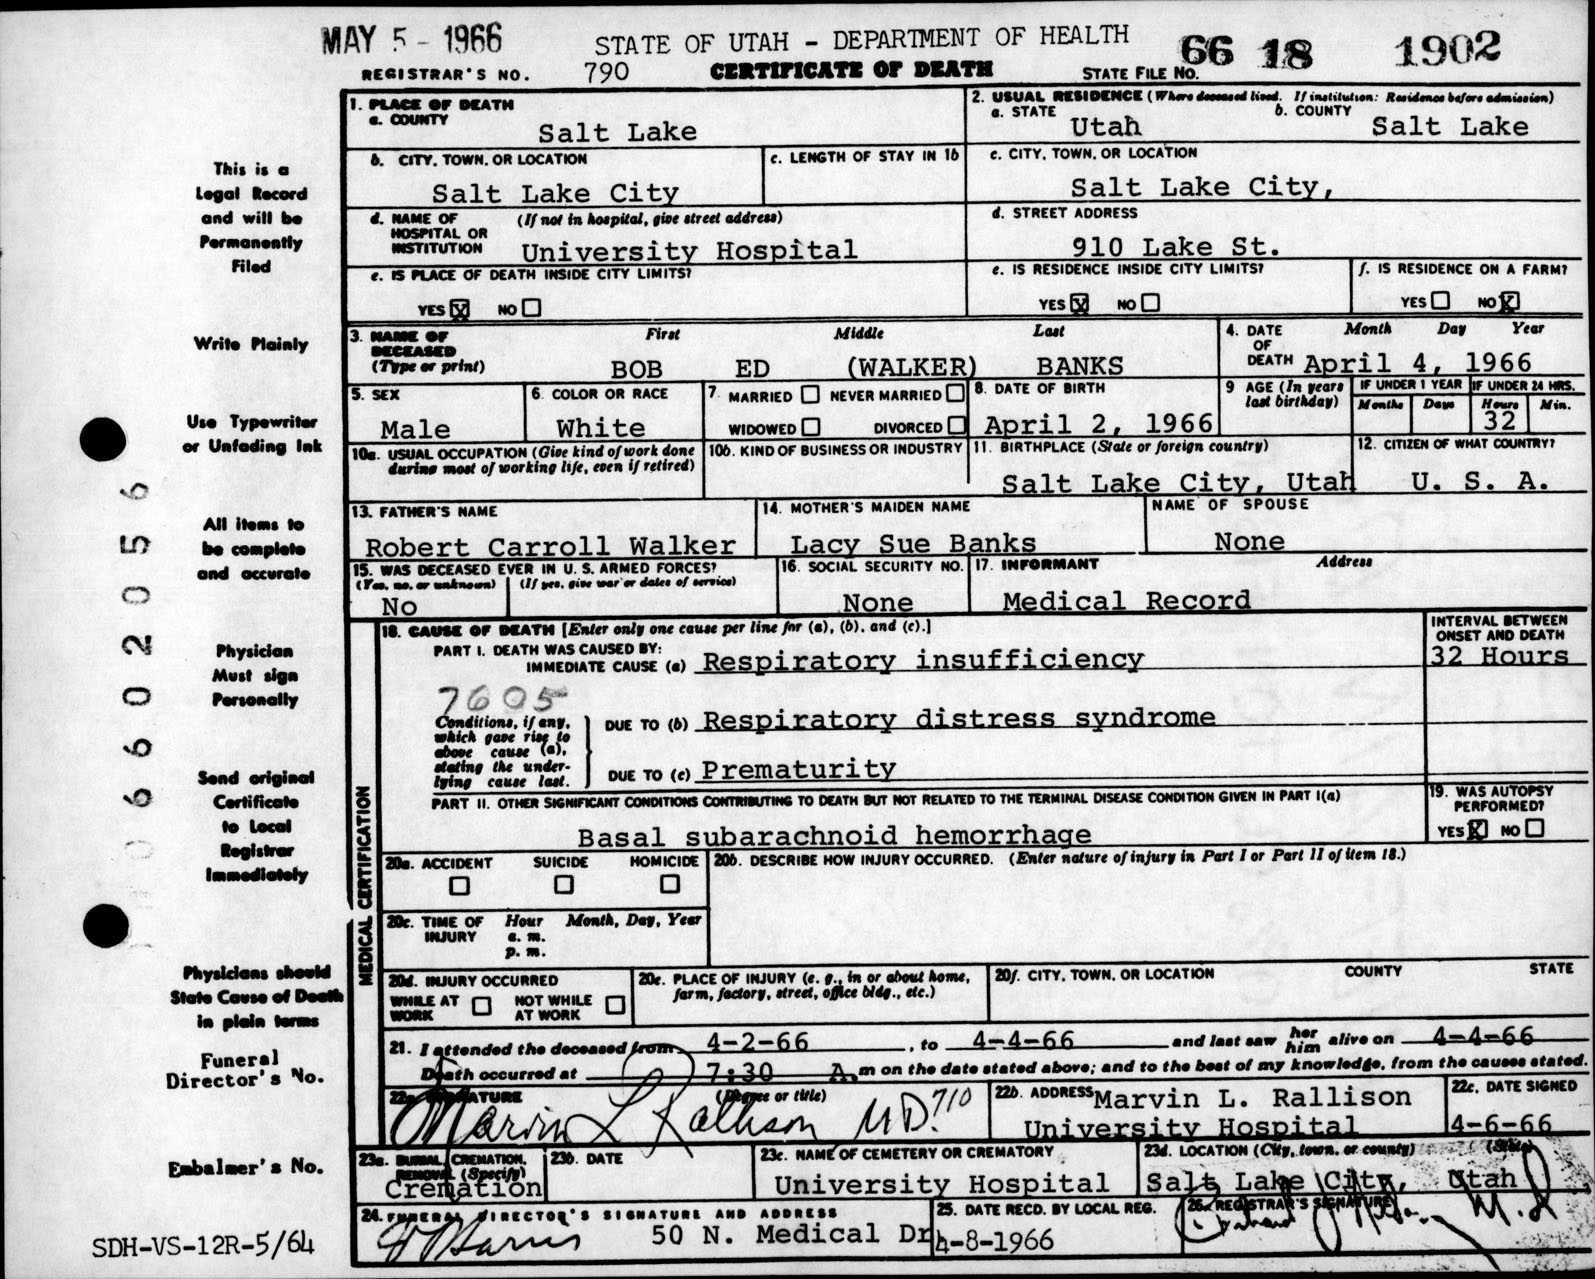 MAY 5 - 1966
STATE OF UTAH - DEPARTMENT OF HEALTH
66 18 1902
REGISTRAR'S NO. 790 CERTIFICATE OF DEATH STATE FILE NO.
1. PLACE OF DEATH
a. COUNTY
Salt Lake
2. USUAL RESIDENCE (Where deceased lived. If institution: Residence before admission)
a. STATE b. COUNTY
Utah Salt Lake
b. CITY, TOWN, OR LOCATION
Salt Lake City
c. LENGTH OF STAY IN 1b
c. CITY, TOWN, OR LOCATION
Salt Lake City,
d. NAME OF HOSPITAL OR INSTITUTION (If not in hospital, give street address)
University Hospital
d. STREET ADDRESS
910 Lake St.
e. IS PLACE OF DEATH INSIDE CITY LIMITS?
YES X NO
e. IS RESIDENCE INSIDE CITY LIMITS?
YES X NO
f. IS RESIDENCE ON A FARM?
YES NO X
3. NAME OF DECEASED (Type or print)
First Middle Last
BOB ED (WALKER) BANKS
4. DATE OF DEATH
Month Day Year
April 4, 1966
5. SEX
Male
6. COLOR OR RACE
White
7. MARRIED NEVER MARRIED
WIDOWED DIVORCED
8. DATE OF BIRTH
April 2, 1966
9 AGE (In years last birthday)
IF UNDER 1 YEAR
Months Days
IF UNDER 24 HRS.
Hours Min.
32
10a. USUAL OCCUPATION (Give kind of work done during most of working life, even if retired)
10b. KIND OF BUSINESS OR INDUSTRY
11. BIRTHPLACE (State or foreign country)
Salt Lake City, Utah
12. CITIZEN OF WHAT COUNTRY?
U. S. A.
13. FATHER'S NAME
Robert Carroll Walker
14. MOTHER'S MAIDEN NAME
Lacy Sue Banks
NAME OF SPOUSE
None
15. WAS DECEASED EVER IN U. S. ARMED FORCES?
(Yes, no, or unknown) (If yes, give war or dates of service)
No
16. SOCIAL SECURITY NO.
None
17. INFORMANT Address
Medical Record
MEDICAL CERTIFICATION
18. CAUSE OF DEATH [Enter only one cause per line for (a), (b), and (c).]
INTERVAL BETWEEN ONSET AND DEATH
PART I. DEATH WAS CAUSED BY:
IMMEDIATE CAUSE (a) Respiratory insufficiency
32 Hours
7605
Conditions, if any, which gave rise to above cause (a), stating the underlying cause last.
DUE TO (b) Respiratory distress syndrome
DUE TO (c) Prematurity
PART II. OTHER SIGNIFICANT CONDITIONS CONTRIBUTING TO DEATH BUT NOT RELATED TO THE TERMINAL DISEASE CONDITION GIVEN IN PART I(a)
Basal subarachnoid hemorrhage
19. WAS AUTOPSY PERFORMED?
YES X NO
20a. ACCIDENT SUICIDE HOMICIDE
20b. DESCRIBE HOW INJURY OCCURRED. (Enter nature of injury in Part I or Part II of item 18.)
20c. TIME OF INJURY Hour Month, Day, Year
a. m.
p. m.
20d. INJURY OCCURRED
WHILE AT WORK NOT WHILE AT WORK
20e. PLACE OF INJURY (e. g., in or about home, farm, factory, street, office bldg., etc.)
20f. CITY, TOWN, OR LOCATION COUNTY STATE
21. I attended the deceased from 4-2-66, to 4-4-66 and last saw her him alive on 4-4-66
Death occurred at 7:30 A.m on the date stated above; and to the best of my knowledge, from the causes stated.
22a. SIGNATURE (Degree or title)
Marvin L Rallison M.D. 710
22b. ADDRESS Marvin L. Rallison
University Hospital
22c. DATE SIGNED
4-6-66
23a. BURIAL, CREMATION, REMOVAL (Specify)
Cremation
23b. DATE
23c. NAME OF CEMETERY OR CREMATORY
University Hospital
23d. LOCATION (City, town, or county) (State)
Salt Lake City, Utah
24. FUNERAL DIRECTOR'S SIGNATURE AND ADDRESS
50 N. Medical Dr.
25. DATE RECD. BY LOCAL REG.
4-8-1966
26. REGISTRAR'S SIGNATURE
M.D.
This is a
Legal Record
and will be
Permanently
Filed
Write Plainly
Use Typewriter
or Unfading Ink
All items to
be complete
and accurate
Physician
Must sign
Personally
Send original
Certificate
to Local
Registrar
Immediately
Physicians should
State Cause of Death
in plain terms
Funeral
Director's No.
Embalmer's No.
SDH-VS-12R-5/64
0660205 6